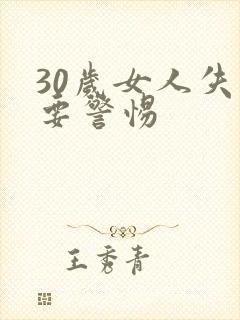 30歲女人失
要警惕
王秀青